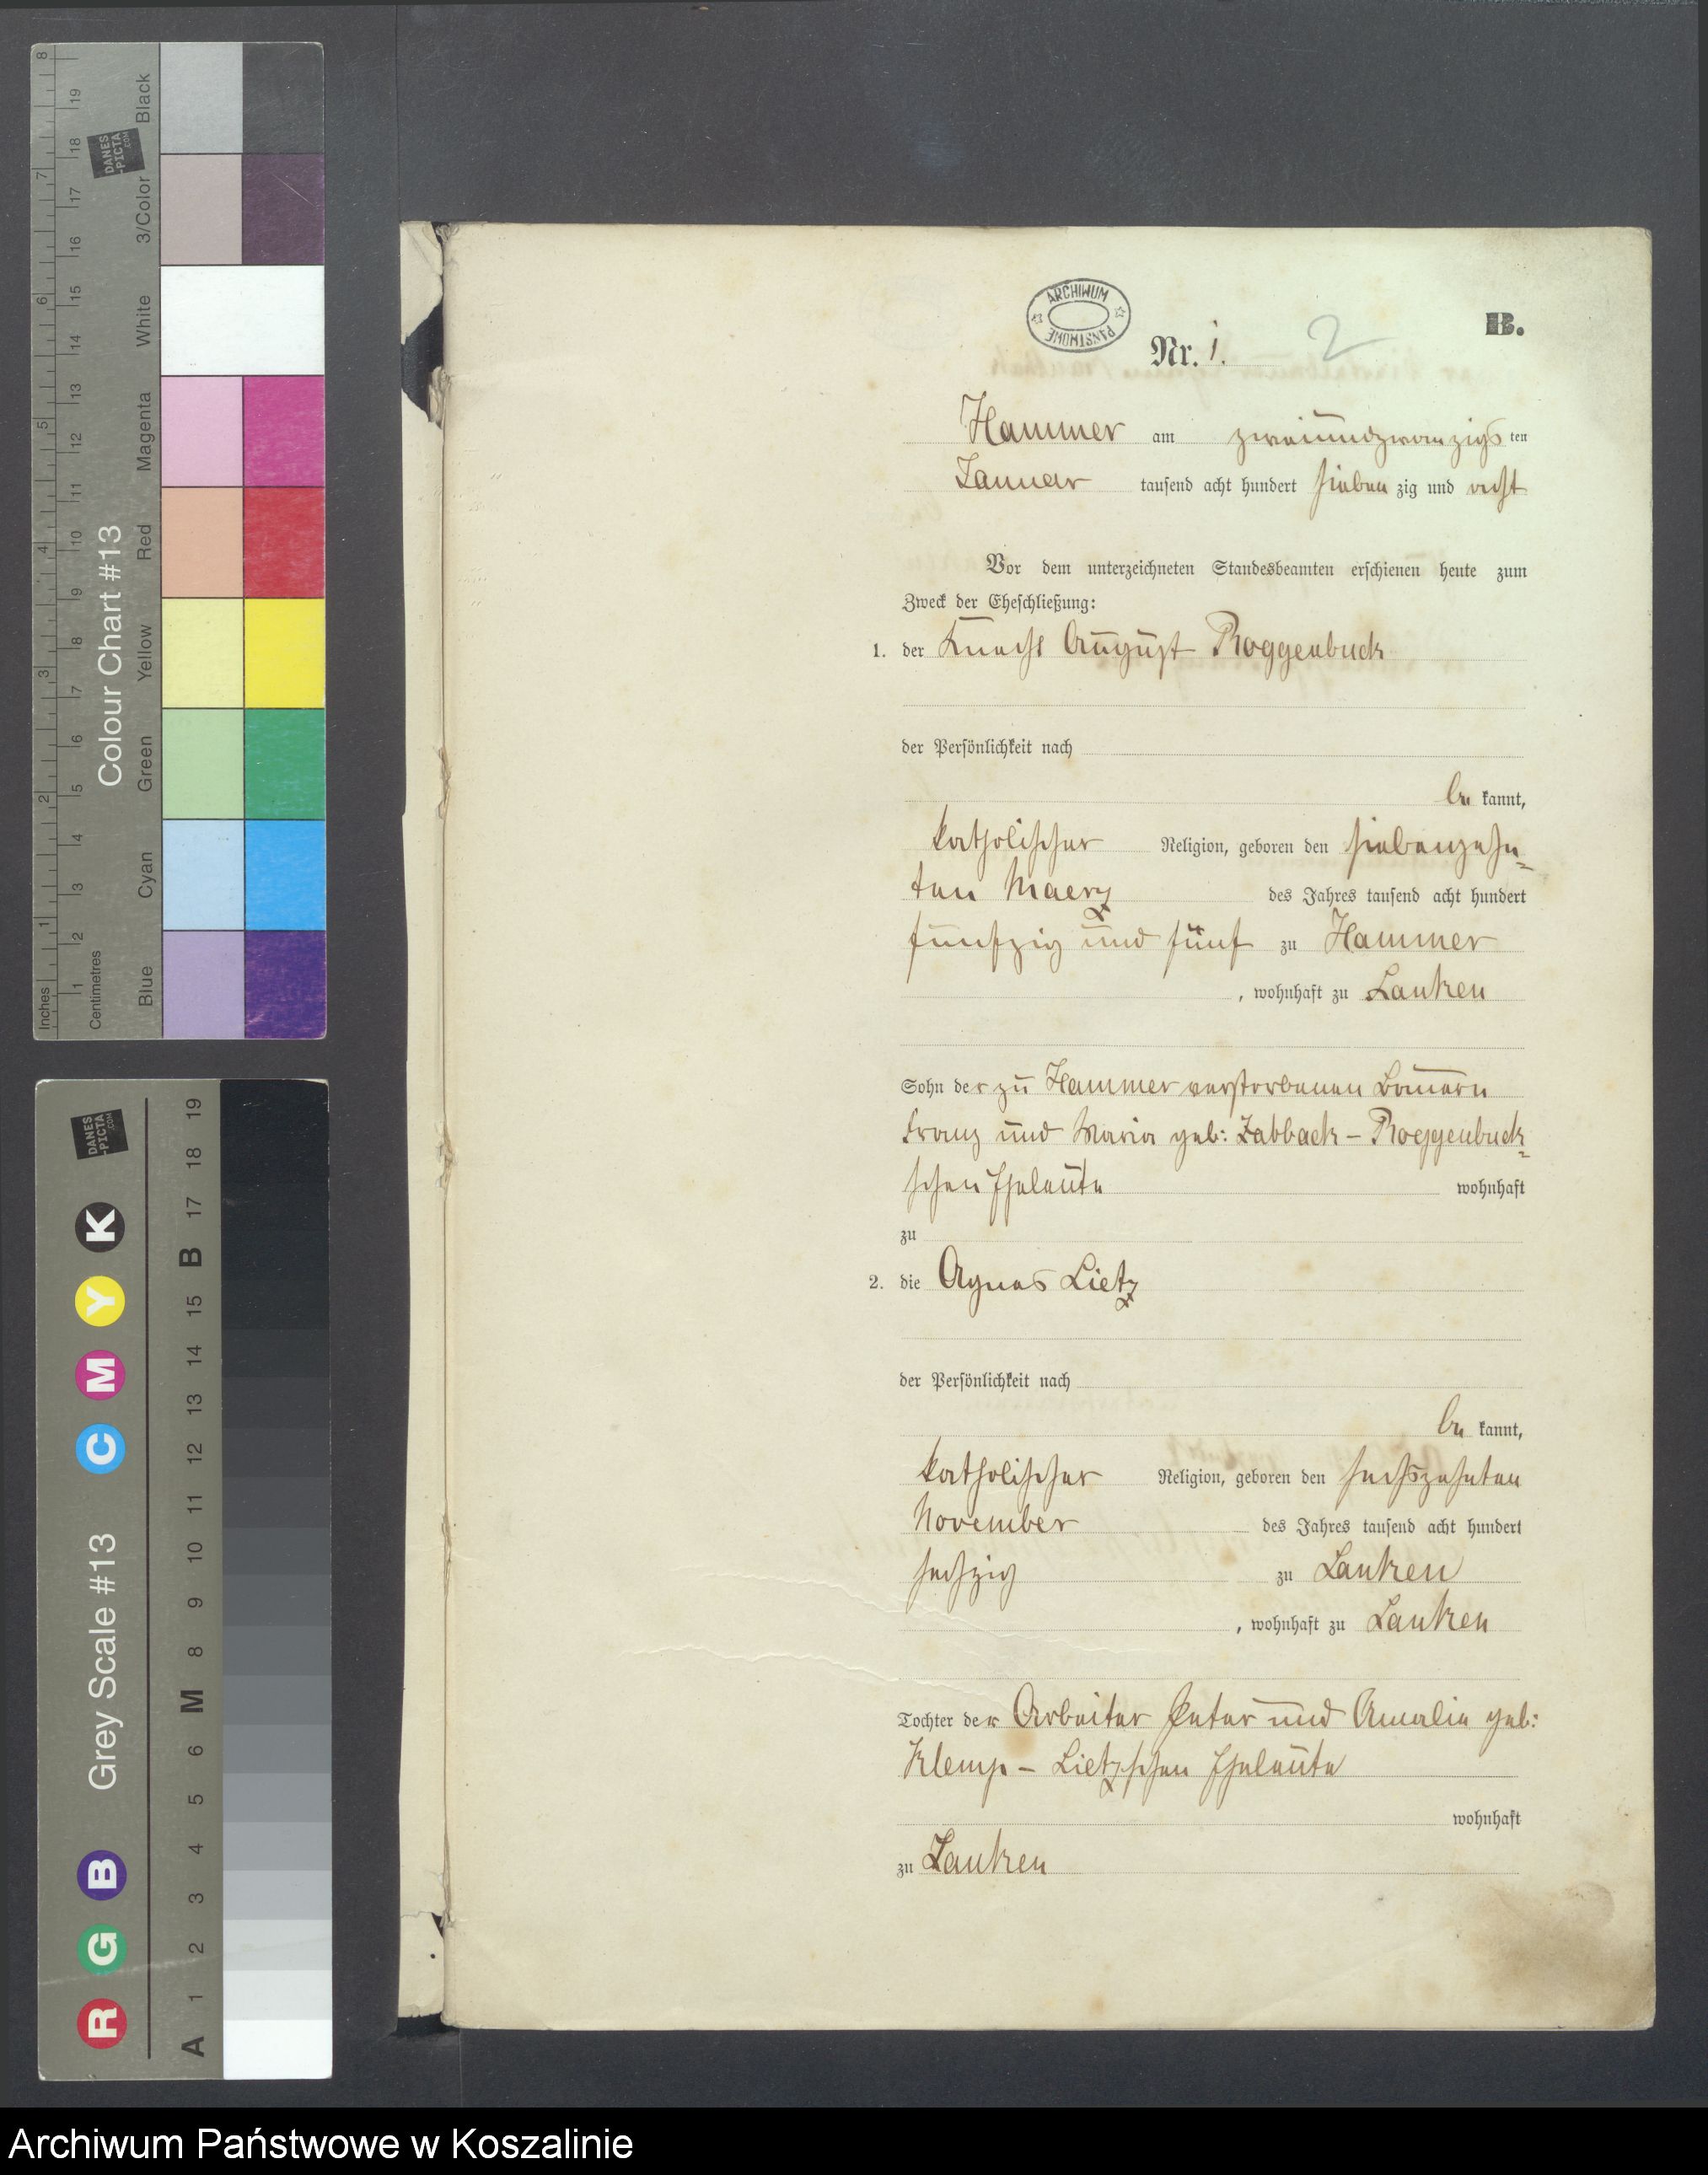 8
19
Black
DANES
-PICTA
.COM
18
7
17
3/Color
16
6
15
White
14
13
Magenta
5
12
11
Red
4
10
Colour Chart #13
9
Yellow
8
3
7
6
Green
2
5
4
Cyan
3
1
2
Blue
1
Inches
Centimetres
DANES
-PICTA
.COM
19
18
17
K
B
Y
15
14
M
13
C
12
11
10
9
8
M
Grey Scale #13
6
5
4
B
3
2
G
1
R
A
ARCHIWUM
PAŃSTWOWE
B.
Nr. 1.
2
Hammer am zweiundzwanzigsten
Januar tausend acht hundert siebenzig und acht
Vor dem unterzeichneten Standesbeamten erschienen heute zum
Zweck der Eheschließung:
1. der Knecht August Roggenbuck
der Persönlichkeit nach
be kannt,
katholischer Religion, geboren den siebenzehn=
ten Maerz des Jahres tausend acht hundert
funfzig und fünf zu Hammer
, wohnhaft zu Lanken
Sohn der zu Hammer verstorbenen Bauern
Franz und Maria geb: Zabback – Roggenbuck=
schen Eheleute wohnhaft
zu
2. die Agnes Lietz
der Persönlichkeit nach
be kannt,
katholischer Religion, geboren den sechszehnten
November des Jahres tausend acht hundert
sechzig zu Lanken
, wohnhaft zu Lanken
Tochter der Arbeiter Peter und Amalie geb:
Klemp – Lietzschen Eheleute
wohnhaft
zu Lanken
Archiwum Państwowe w Koszalinie